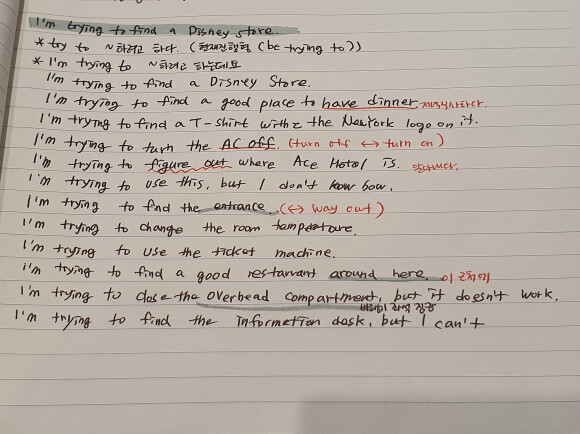 I'm trying to find a Disney store.
* try to ~하려고 하다. (현재진행형 (be trying to))
* I'm trying to ~하려고 하는데요
I'm trying to find a Disney Store.
I'm trying to find a good place to have dinner. 저녁식사하다.
I'm trying to find a T-shirt with the New York logo on it.
I'm trying to turn the AC off. (turn off ↔ turn on)
I'm trying to figure out where Ace Hotel is. 알아내다.
I'm trying to use this, but I don't know how.
I'm trying to find the entrance. (↔ way out)
I'm trying to change the room temperature.
I'm trying to use the ticket machine.
I'm trying to find a good restaurant around here. 이 근처에
I'm trying to close the overhead compartment, but it doesn't work.
비행기 좌석 짐칸
I'm trying to find the information desk, but I can't